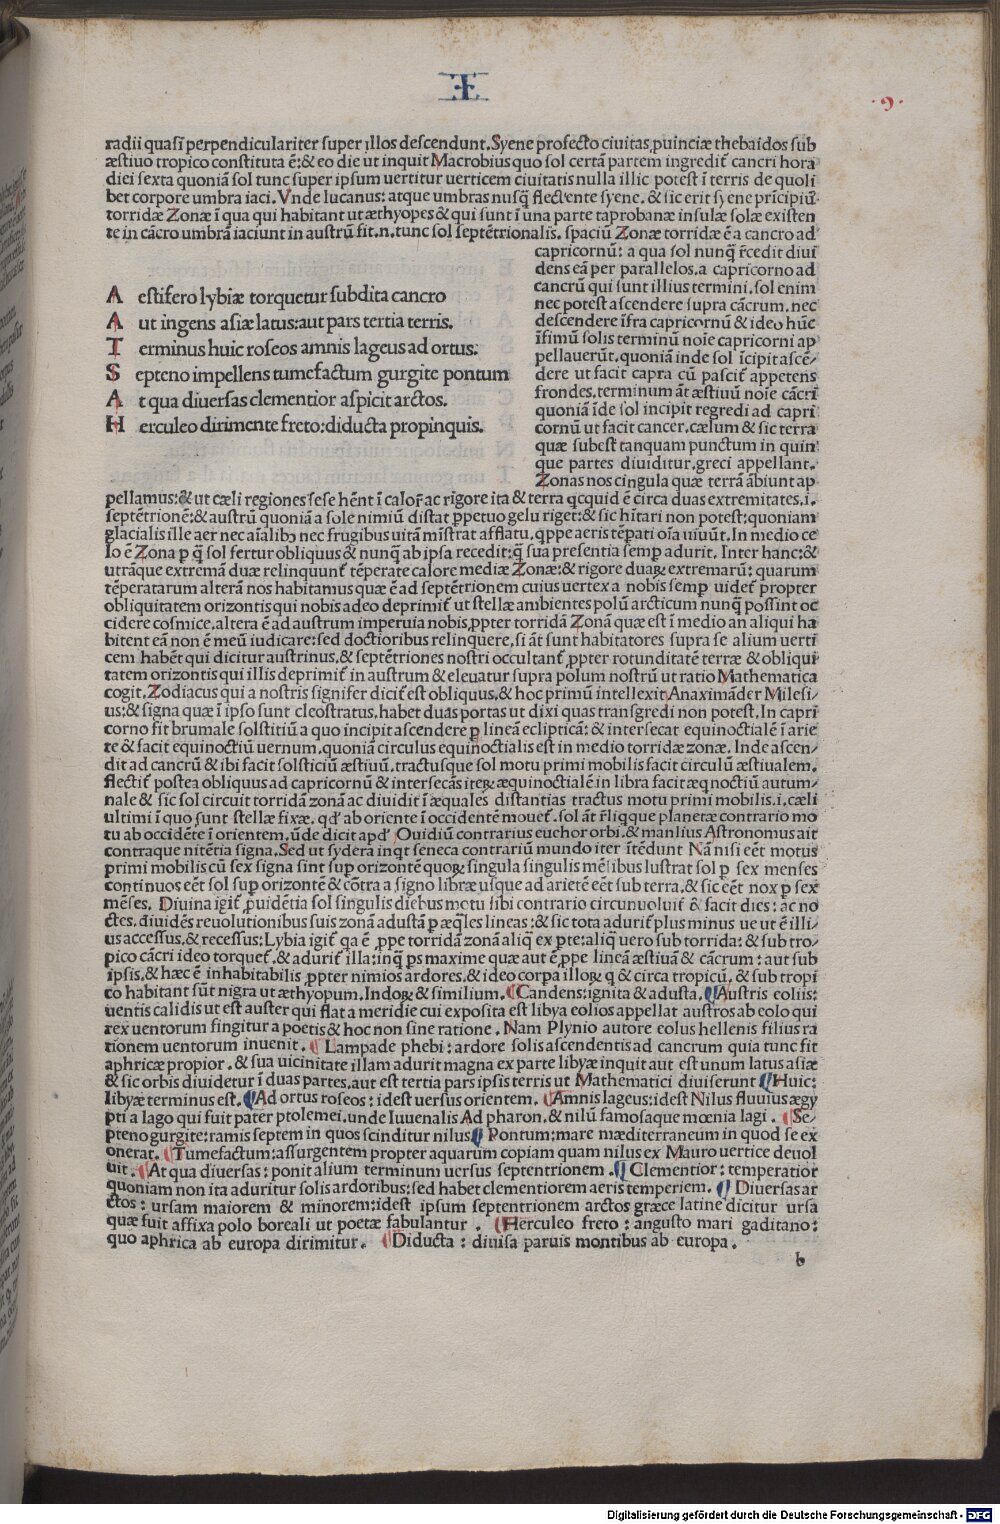 I
.9.
radii quasi perpendiculariter super illos descendunt. Syene profecto ciuitas ꝓuinciæ thebaidos sub
æstiuo tropico constituta ē: & eo die ut inquit Macrobius quo sol certā partem ingredit̃ cancri hora
diei sexta quoniā sol tunc super ipsum uertitur uerticem ciuitatis nulla illic potest ī terris de quoli
bet corpore umbra iaci. Vnde lucanus: atque umbras nusq̃ flectente syene. & sic erit syene prīcipiū
torridæ Zonæ ī qua qui habitant ut æthyopes & qui sunt ī una parte taprobanæ insulæ solæ existen
te in cācro umbrā iaciunt in austrū fit.n. tunc sol septētrionalis. spaciū Zonæ torridæ ē a cancro ad
capricornū: a qua sol nunq̃ r̄cedit diui
dens eā per parallelos. a capricorno ad
cancrū qui sunt illius termini. sol enim
nec potest ascendere supra cācrum. nec
descendere īfra capricornū & ideo hūc
īfimū solis terminū noīe capricorni ap
pellauerūt. quoniā inde sol īcipit ascē/
dere ut facit capra cū pascit̃ appetens
frondes. terminum āt æstiuū noīe cācri
quoniā īde sol incipit regredi ad capri
cornū ut facit cancer. cælum & sic terra
quæ subest tanquam punctum in quin
que partes diuiditur. greci appellant.
Zonas nos cingula quæ terrā ābiunt ap
A estifero lybiæ torquetur subdita cancro
A ut ingens asiæ latus: aut pars tertia terris.
T erminus huic roseos amnis lageus ad ortus.
S epteno impellens tumefactum gurgite pontum
A t qua diuersas clementior aspicit arctos.
H erculeo dirimente freto: diducta propinquis.
pellamus: & ut cæli regiones sese hēnt ī calor̄ ac rigore ita & terra qcquid ē circa duas extremitates. i.
septētrionē: & austrū quoniā a sole nimiū distat ꝑpetuo gelu riget: & sic hītari non potest: quoniam
glacialis ille aer nec aīalibꝫ nec frugibus uitā mīstrat afflatu. qppe aeris tēpati oīa uiuūt. In medio ce
lo ē Zona ꝑ q̃ sol fertur obliquus & nunq̃ ab ipsa recedit: q̃ sua presentia semꝑ adurit. Inter hanc: &
utrāque extremā duæ relinquunt̃ tēperate calore mediæ Zonæ: & rigore duaꝝ extremarū: quarum
tēperatarum alterā nos habitamus quæ ē ad septētrionem cuius uertex a nobis semꝑ uidet̃ propter
obliquitatem orizontis qui nobis adeo deprimit̃ ut stellæ ambientes polū arcticum nunq̃ possint oc
cidere cosmice. altera ē ad austrum imperuia nobis ꝓpter torridā Zonā quæ est ī medio an aliqui ha
bitent eā non ē meū iudicare: sed doctioribus relinquere. si āt sunt habitatores supra se alium uerti
cem habēt qui dicitur austrinus. & septētriones nostri occultant̃ ꝓpter rotunditatē terræ & obliqui
tatem orizontis qui illis deprimit̃ in austrum & eleuatur supra polum nostrū ut ratio Mathematica
cogit. Zodiacus qui a nostris signifer dicit̃ est obliquus. & hoc primū intellexit Anaximāder Milesi/
us: & signa quæ ī ipso sunt cleostratus. habet duas portas ut dixi quas transgredi non potest. In capri
corno fit brumale solstitiū a quo incipit ascendere ꝑ lineā eclipticā: & intersecat equinoctialē ī arie
te & facit equinoctiū uernum. quoniā circulus equinoctialis est in medio torridæ zonæ. Inde ascen/
dit ad cancrū & ibi facit solsticiū æstiuū. tractusque sol motu primi mobilis facit circulū æstiualem.
flectit̃ postea obliquus ad capricornū & intersecās iteꝝ æquinoctialē in libra facit æqnoctiū autum/
nale & sic sol circuit torridā zonā ac diuidit ī æquales distantias tractus motu primi mobilis. i. cæli
ultimi ī quo sunt stellæ fixæ. qd' ab oriente ī occidentē mouet̃. sol āt r̄liqque planetæ contrario mo
tu ab occidēte ī orientem. ūde dicit apd' Ouidiū contrarius euehor orbi. & manlius Astronomus ait
contraque nitētia signa. Sed ut sydera inqt seneca contrariū mundo iter ītēdunt Nā nisi eēt motus
primi mobilis cū sex signa sint suꝑ orizontē quoꝝ singula singulis mēsibus lustrat sol ꝑ sex menses
continuos eēt sol suꝑ orizontē & cōtra a signo libræ usque ad arietē eēt sub terra. & sic eēt nox ꝑ sex
mēses. Diuina igit̃ ꝓuidētia sol singulis diebus motu sibi contrario circunuoluit̃ & facit dies: ac no
ctes. diuidēs reuolutionibus suis zonā adustā ꝑ æq̃les lineas: & sic tota adurit̃ plus minus ue ut ē illi/
us accessus. & recessus: Lybia igit̃ qa ē ꝓpe torridā zonā aliq̃ ex ꝑte: aliq̃ uero sub torrida: & sub tro/
pico cācri ideo torquet̃. & adurit̃ illa: inq̃ ps maxime quæ aut ē ꝓpe lineā æstiuā & cācrum: aut sub
ipsis. & hæc ē inhabitabilis ꝓpter nimios ardores. & ideo corpa illoꝝ q & circa tropicū. & sub tropi
co habitant sūt nigra ut æthyopum. Indoꝝ & similium. ¶Candens: ignita & adusta. ¶Austris eoliis:
uentis calidis ut est auster qui flat a meridie cui exposita est libya eolios appellat austros ab eolo qui
rex uentorum fingitur a poetis & hoc non sine ratione. Nam Plynio autore eolus hellenis filius ra
tionem uentorum inuenit. ¶ Lampade phebi: ardore solis ascendentis ad cancrum quia tunc fit
aphricæ propior. & sua uicinitate illam adurit magna ex parte libyæ inquit aut est unum latus asiæ
& sic orbis diuidetur ī duas partes. aut est tertia pars ipsis terris ut Mathematici diuiserunt ¶Huic:
libyæ terminus est. ¶Ad ortus roseos: idest uersus orientem. ¶Amnis lageus: idest Nilus fluuius ægy
pti a lago qui fuit pater ptolemei. unde Iuuenalis Ad pharon. & nilū famosaque mœnia lagi. ¶Se/
pteno gurgite: ramis septem in quos scinditur nilus ¶ Pontum: mare mæditerraneum in quod se ex
onerat. ¶Tumefactum: assurgentem propter aquarum copiam quam nilus ex Mauro uertice deuol
uit. ¶At qua diuersas: ponit alium terminum uersus septentrionem. ¶ Clementior: temperatior
quoniam non ita aduritur solis ardoribus: sed habet clementiorem aeris temperiem. ¶ Diuersas ar
ctos: ursam maiorem & minorem: idest ipsum septentrionem arctos græce latine dicitur ursa
quæ fuit affixa polo boreali ut poetæ fabulantur. ¶Herculeo freto: angusto mari gaditano:
quo aphrica ab europa dirimitur. ¶Diducta: diuisa paruis montibus ab europa.
b
Digitalisierung gefördert durch die Deutsche Forschungsgemeinschaft - DFG